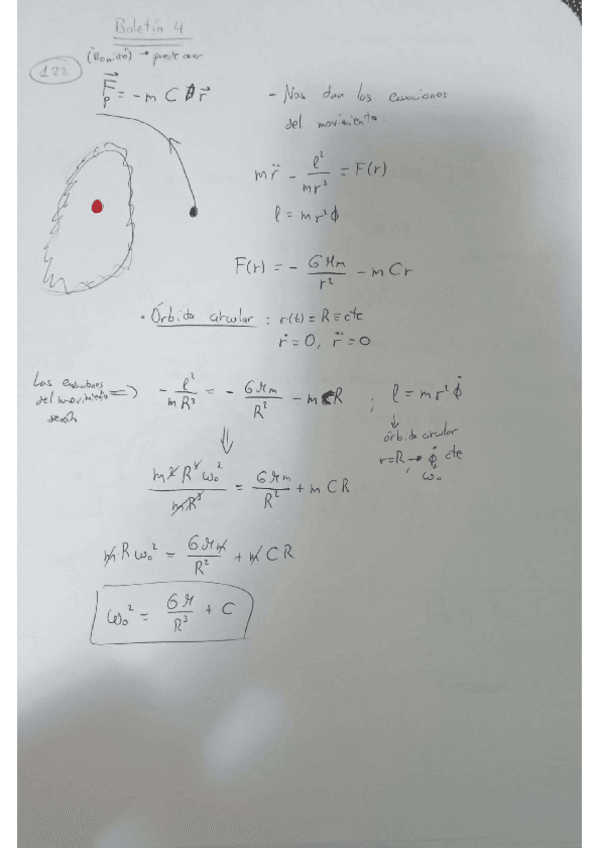 Boletín 4
("Bonito") → puede caer
122
F⃗p = -m C r⃗
- Nos dan las ecuaciones
del movimiento.
m r̈ - ℓ²/mr³ = F(r)
ℓ = mr²ϕ̇
F(r) = - GMm/r² - mCr
· Órbida circular : r(t) = R ≡ cte
ṙ = 0, r̈ = 0
Las ecuaciones
del movimiento
serán
=> - ℓ²/mR³ = - GMm/R² - mCR ; ℓ = mr²ϕ̇
↓
órbida circular
r=R → ϕ̇ cte
ω₀
⇓
m²R⁴ω₀²/mR³ = GMm/R² + mCR
mRω₀² = GMm/R² + mCR
ω₀² = GM/R³ + C